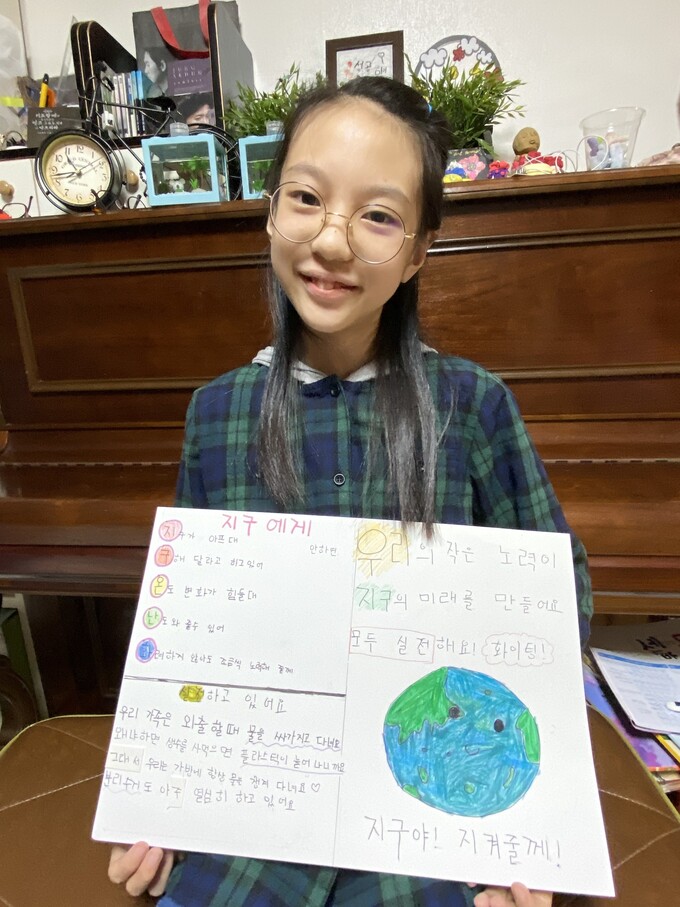 지구에게
지구가 아프대
구해 달라고 비고있어
온도 변화가 힘들대
난도와 줄수 있어
화려하지 않아도 조금씩 노력해 볼게
실천하고 있어요
우리 가족은 외출할때 물을 싸가지고 다녀요
왜냐하면 생수를 사먹으면 플라스틱이 늘어나니까요
그대서 우리는 가방에 항상 물을 챙겨 다녀요♡
분리수거도 아주 열심히 하고 있어요
우리의 작은 노력이
지구의 미래를 만들어요
모두 실전해요! 화이팅!
지구야! 지켜줄께!